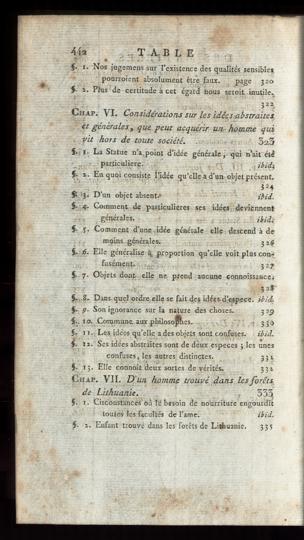 442 TABLE
§. 1. Nos jugemens sur l'existence des qualités sensibles
pourroient absolument être faux. page 320
§. 2. Plus de certitude à cet égard nous seroit inutile.
322
CHAP. VI. Considérations sur les idées abstraites
et générales, que peut acquérir un homme qui
vit hors de toute société. 323
§. 1. La Statue n'a point d'idée générale, qui n'ait été
particuliere. ibid.
§. 2. En quoi consiste l'idée qu'elle a d'un objet présent.
324
§. 3. D'un objet absent. ibid.
§. 4. Comment de particulieres ses idées deviennent
générales. ibid.
§. 5. Comment d'une idée générale elle descend à de
moins générales. 326
§. 6. Elle généralise à proportion qu'elle voit plus con-
fusément. 327
§. 7. Objets dont elle ne prend aucune connoissance.
328
§. 8. Dans quel ordre elle se fait des idées d'espece. ibid.
§. 9. Son ignorance sur la nature des choses. 329
§. 10. Commune aux philosophes. 330
§. 11. Les idées qu'elle a des objets sont confuses. ibid.
§. 12. Ses idées abstraites sont de deux especes ; les unes
confuses, les autres distinctes. 331
§. 13. Elle connoit deux sortes de vérités. 332
CHAP. VII. D'un homme trouvé dans les forêts
de Lithuanie. 333
§. 1. Circonstances où le besoin de nourriture engourdit
toutes les facultés de l'ame. ibid.
§. 2. Enfant trouvé dans les forêts de Lithuanie. 335